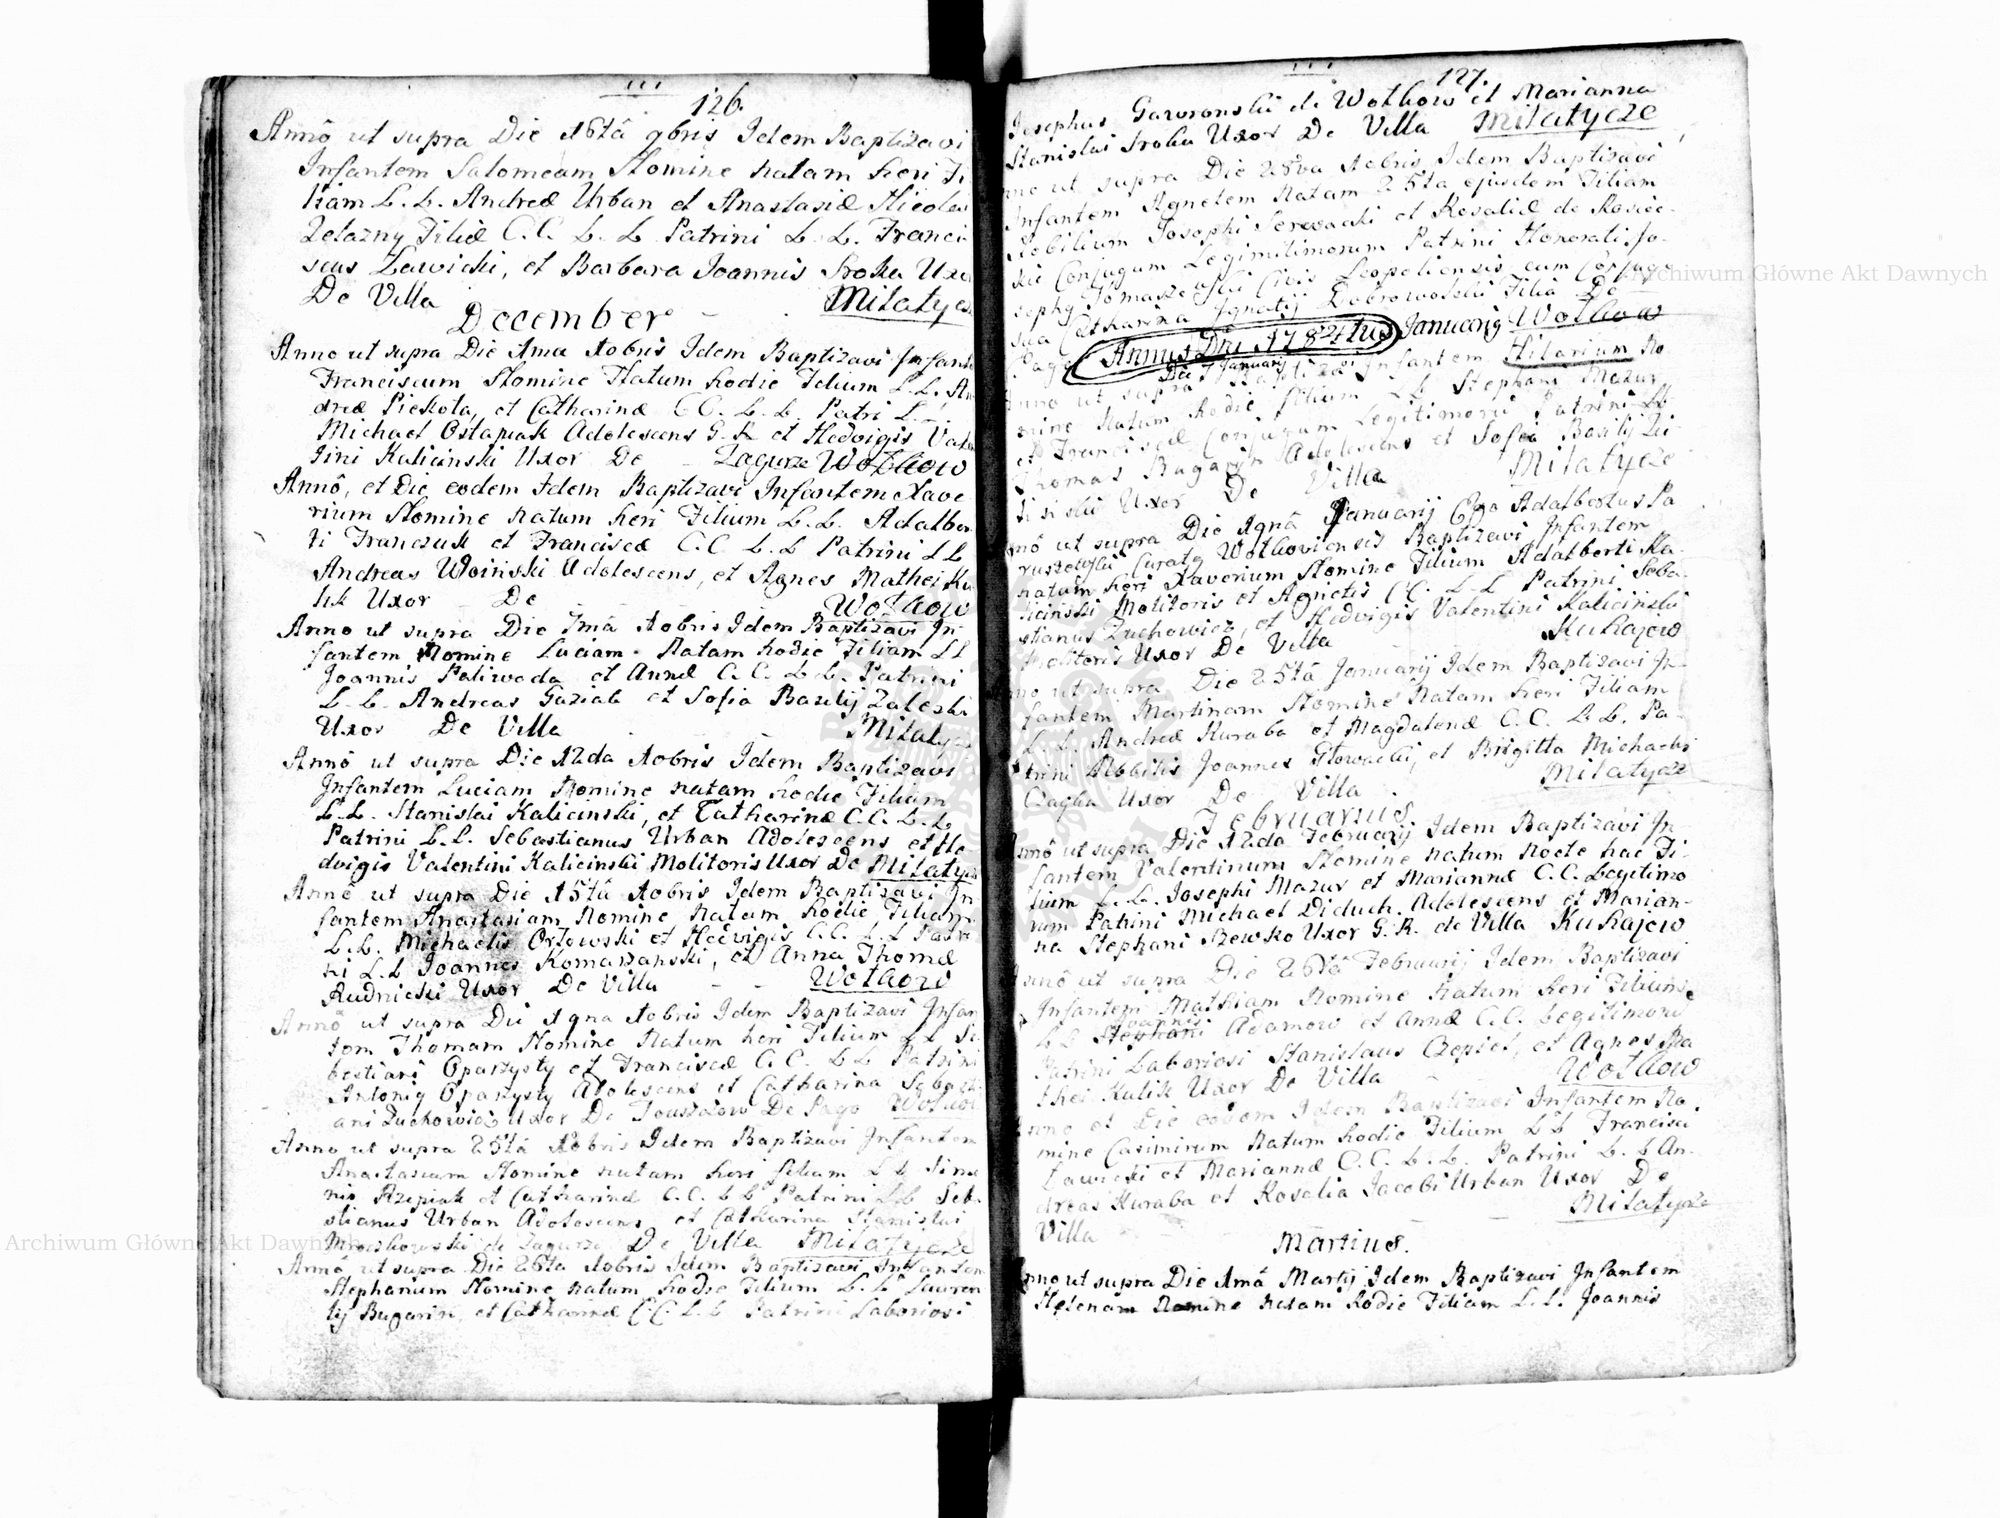 126.
Annô ut supra Die 16tâ 9bris Idem Baptizavi
Infantem Salomeam Nomine natam heri Fi
liam L. L. Andreæ Urban et Anastasiæ Nicolai
Zelazny Filiæ C. C. L. L. Patrini L. L. Franci
scus Zawicki, et Barbara Joannis Sroka Uxo
De Villa Milatyc
December
Anno ut supra Die 1ma Xobris Idem Baptizavi Infant
Franciscum Nomine Natum hodie Filium L. L. An
dreæ Piekota, et Catharinæ C C. L. L. Patri L.
Michael Ostapiak Adolescens G. R. et Hedvigis Valen
tini Kalicinski Uxor De Zagurze Wołkow
Annô, et Die eodem Idem Baptizavi Infantem Xave
rium Nomine natum heri Filium L. L. Adalber
ti Franczuk et Franciscæ C. C L. L Patrini L L
Andreas Woiński Adolescens, et Agnes Mathei Ku
lik Uxor De Wołkow
Anno ut supra Die 7mâ Xobris Idem Baptizavi In
fantem Nomine Luciam Natam hodie Filiam LL
Joannis Paliwoda et Annæ C. C. L. L. Patrini
L. L. Andreas Gaziak et Sofia Bazilij Zaleski
Uxor De Villa Milaty
Annô ut supra Die 12da Xobris Idem Baptizavi
Infantem Luciam Nomine natam hodie Filiam
L. L. Stanislai Kalicinski, et Catharinæ C. C. L. L.
Patrini L. L. Sebastianus Urban Adolescens et He
dvigis Valentini Kalicinski Molitoris Uxor De Milatyc
Annô ut supra Die 15tâ Xobris Idem Baptizavi In
fantem Anastasiam Nomine Natam hodie Filiam
L. L. Michaelis Orłowski et Hedvigis C. C. L. L Patri
ni L. L Joannes Komarzanski, et Anna Thomæ
Rudnicki Uxor De Villa Wołkow
Annô ut supra Die Xobris Idem Baptizavi Infan
tem Thomam Nomine Natum heri Filium L L Se
bestiani Oparzysty et Franciscæ C. C. L L Patrini
Antonij Oparzysty Adolescens et Catharina Sebasti
ani Zuchowicz Uxor De De Pago Wołkow
Anno ut supra 25tâ Xobris Idem Baptizavi Infantem
Anastasiam Nomine natam heri filiam L L Simo
nis Rzepiak et Catharinæ C. C. L L Patrini L L Seb.
stianus Urban Adolescens et Catharina Stanislai
Mroczkowski de Zagurze De Villa Milatycze
Annô ut supra Die 26ta Xobris Idem Baptizavi Infantem
Stephanum Nomine natum hodie Filium L. L. Lauren
tij Bugarin, et Catharinæ C C L. L Patrini Laboriosi
127.
Josephus Gawronski de Wołkow et Marianna
Stanislai Sroka Uxor De Villa Milatycze
ut supra Die 28va Xobris Idem Baptizavi
Infantem Agnetem Natam 25ta ejusdem Filiam
Nobilium Josephi et Rosaliæ de
Conjugum Legimitimorum Patrini Honorati Jo-
sephg Tomaszewski Civis Leopoliensis cum Conjuge
sua Catharina Ignatij Dobrowolski Filia De
Pago Wołkow
Annus Dni 1784tus Januarig
Die 1 Januarij
Anno ut supra Baptizavi Infantem Hilarium No
mine Natum hodie filium L L Stephani Mazur
et Franciscæ Conjugum Legitimorũ Patrini LL
Thomas Bugarin Adolescens et Sofia Bazilij Zi-
Uxor De Villa Milatycze
ut supra Die Januarij Ego Adalbertus Pa
ruszewski Curatg Wołkoviensis Baptizavi Infantem
natum heri Xaverium Nomine Filium Adalberti Ka-
licinski Molitoris et Agnetis CC. L. L Patrini Seba-
stianus Zuchowicz, et Hedvigis Valentini Kalicinski
Molitoris Uxor De Villa Kuhajow
ut supra Die 25tâ Januarij Idem Baptizavi In-
fantem Martinam Nomine Natam heri Filiam
L. L. Andreæ Kuraba et Magdalenæ C. C. L. L. Pa-
trini Nobilis Joannes Głowacki, et Brigitta Michaelis
Czajka Uxor De Villa Milatycze
Februarius
Annô ut supra Die 12da Februarij Idem Baptizavi In-
fantem Valentinum Nomine natum nocte hac Fi-
lium L. L. Josephi Mazur et Mariannæ C. C. Legitimo
rum Patrini Michael Diduch Adolescens et Marian-
na Stephani Szewsko Uxor G. R. de Villa Kuhajow
Annô ut supra Die 26tâ Februarij Idem Baptizavi
Infantem Mathiam Nomine Natum heri Filium
Joannis
L L Stephani Adamow et Annæ C. C. Legitimorũ
Patrini Laboriosi Stanislaus Czepiel, et Agnes Ma
thei Kulik Uxor De Villa Wołkow
Anno et Die eodem Idem Baptizavi Infantem No.
mine Casimirum Natum hodie Filium L L Francisci
Zawicki et Mariannæ C. C. L. L. Patrini L. L An-
dreas Kuraba et Rosalia Jacobi Urban Uxor De
Villa Milatycze
Martius.
Anno ut supra Die 1mâ Martij Idem Baptizavi Infantem
Helenam Nomine natam hodie Filiam L. L. Joannis
Archiwum Główne Akt Dawnych
Archiwum Główne Akt Dawnych